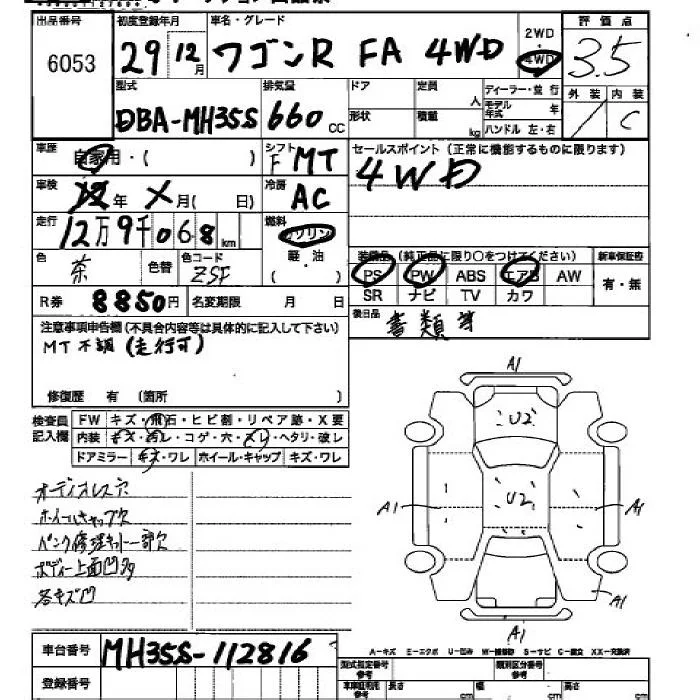 出品番号 初度登録年月 車名・グレード 2WD・4WD 評価点
6053 29 12月 ワゴンR FA 4WD 3.5
型式 排気量 ドア 定員 人 ディーラー・並行 外装 内装
DBA-MH35S 660cc 形状 積載 kg モデル年式 年 C
ハンドル 左・右
車歴 自家用・( ) シフト F MT セールスポイント (正常に機能するものに限ります)
車検 年 月( 日) 冷房 AC 4WD
走行 12万9千068km 燃料 ガソリン
色 茶 色替 色コード 軽・油 ( ) 装備品 (純正品に限り○をつけてください) 新車保証書
PS PW ABS エアB AW 有・無
R券 8850円 名変期限 月 日 SR ナビ TV カワ
注意事項申告欄(不具合内容等は具体的に記入して下さい) 後日品 書類等
MT不調 (走行可)
修復歴 有 (箇所 )
検査員記入欄 FW キズ・飛石・ヒビ割・リペア跡・X要
内装 キズ・汚レ・コゲ・穴・スレ・ヘタリ・破レ
ドアミラー キズ・ワレ ホイール・キャップ キズ・ワレ
A1
U2
A1 U2 A1
A1
A1
オーディオレス穴
ホイールキャップ欠
パンク修理キット一部欠
ボディー上面凹多
各キズ凹
車台番号 MH35S-112816
A-キズ E-エクボ U-凹み W-補修跡 S-サビ C-腐食 XX-交換済
登録番号 型式指定番号 参考 類別区分番号 参考
長さ cm 幅 cm 高さ cm